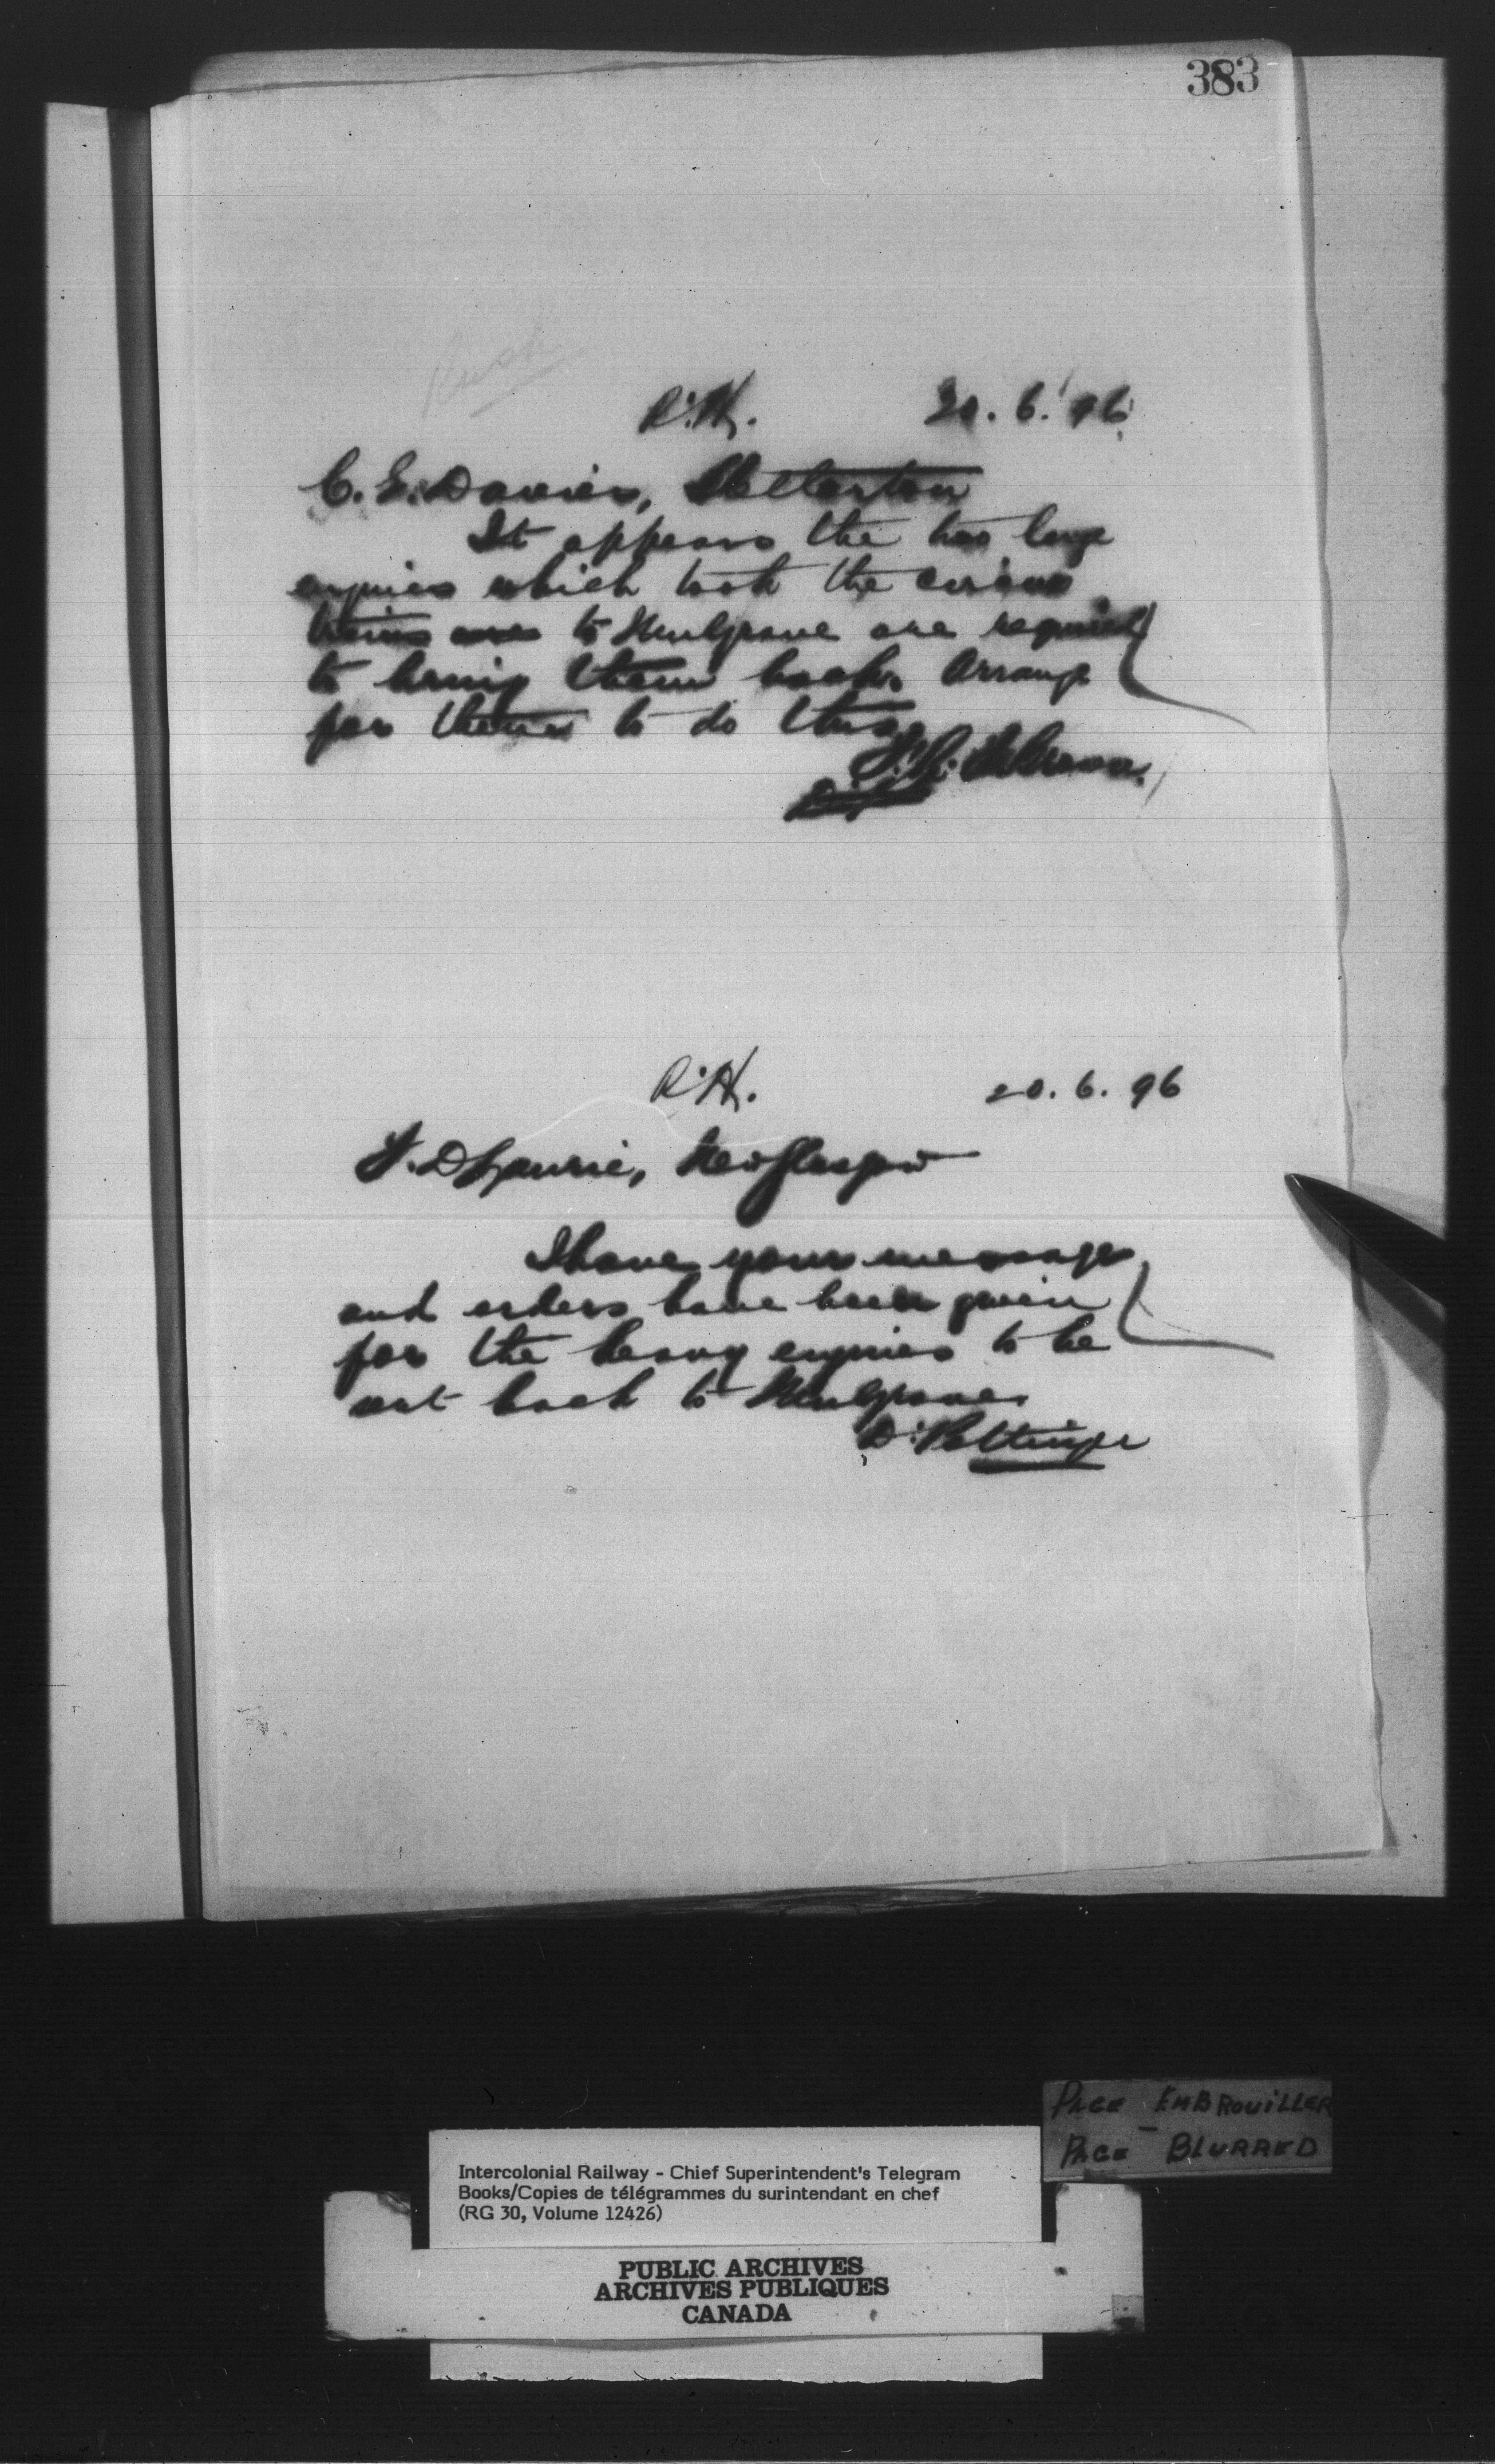 383
Rush
R.H. 20.6.'96
C. E. Davies, Stellarton
It appears the two large
engines which took the circus
trains to Mulgrave are required
to bring them back. Arrange
for them to do this
R.H. 20.6.96
T. D. Laurie, New Glasgow
I have your message
and orders have been given
for the heavy engines to be
sent back to Mulgrave
D. Pottinger
PAGE EMBROUILLER
PAGE BLURRED
Intercolonial Railway - Chief Superintendent's Telegram
Books/Copies de télégrammes du surintendant en chef
(RG 30, Volume 12426)
PUBLIC ARCHIVES
ARCHIVES PUBLIQUES
CANADA